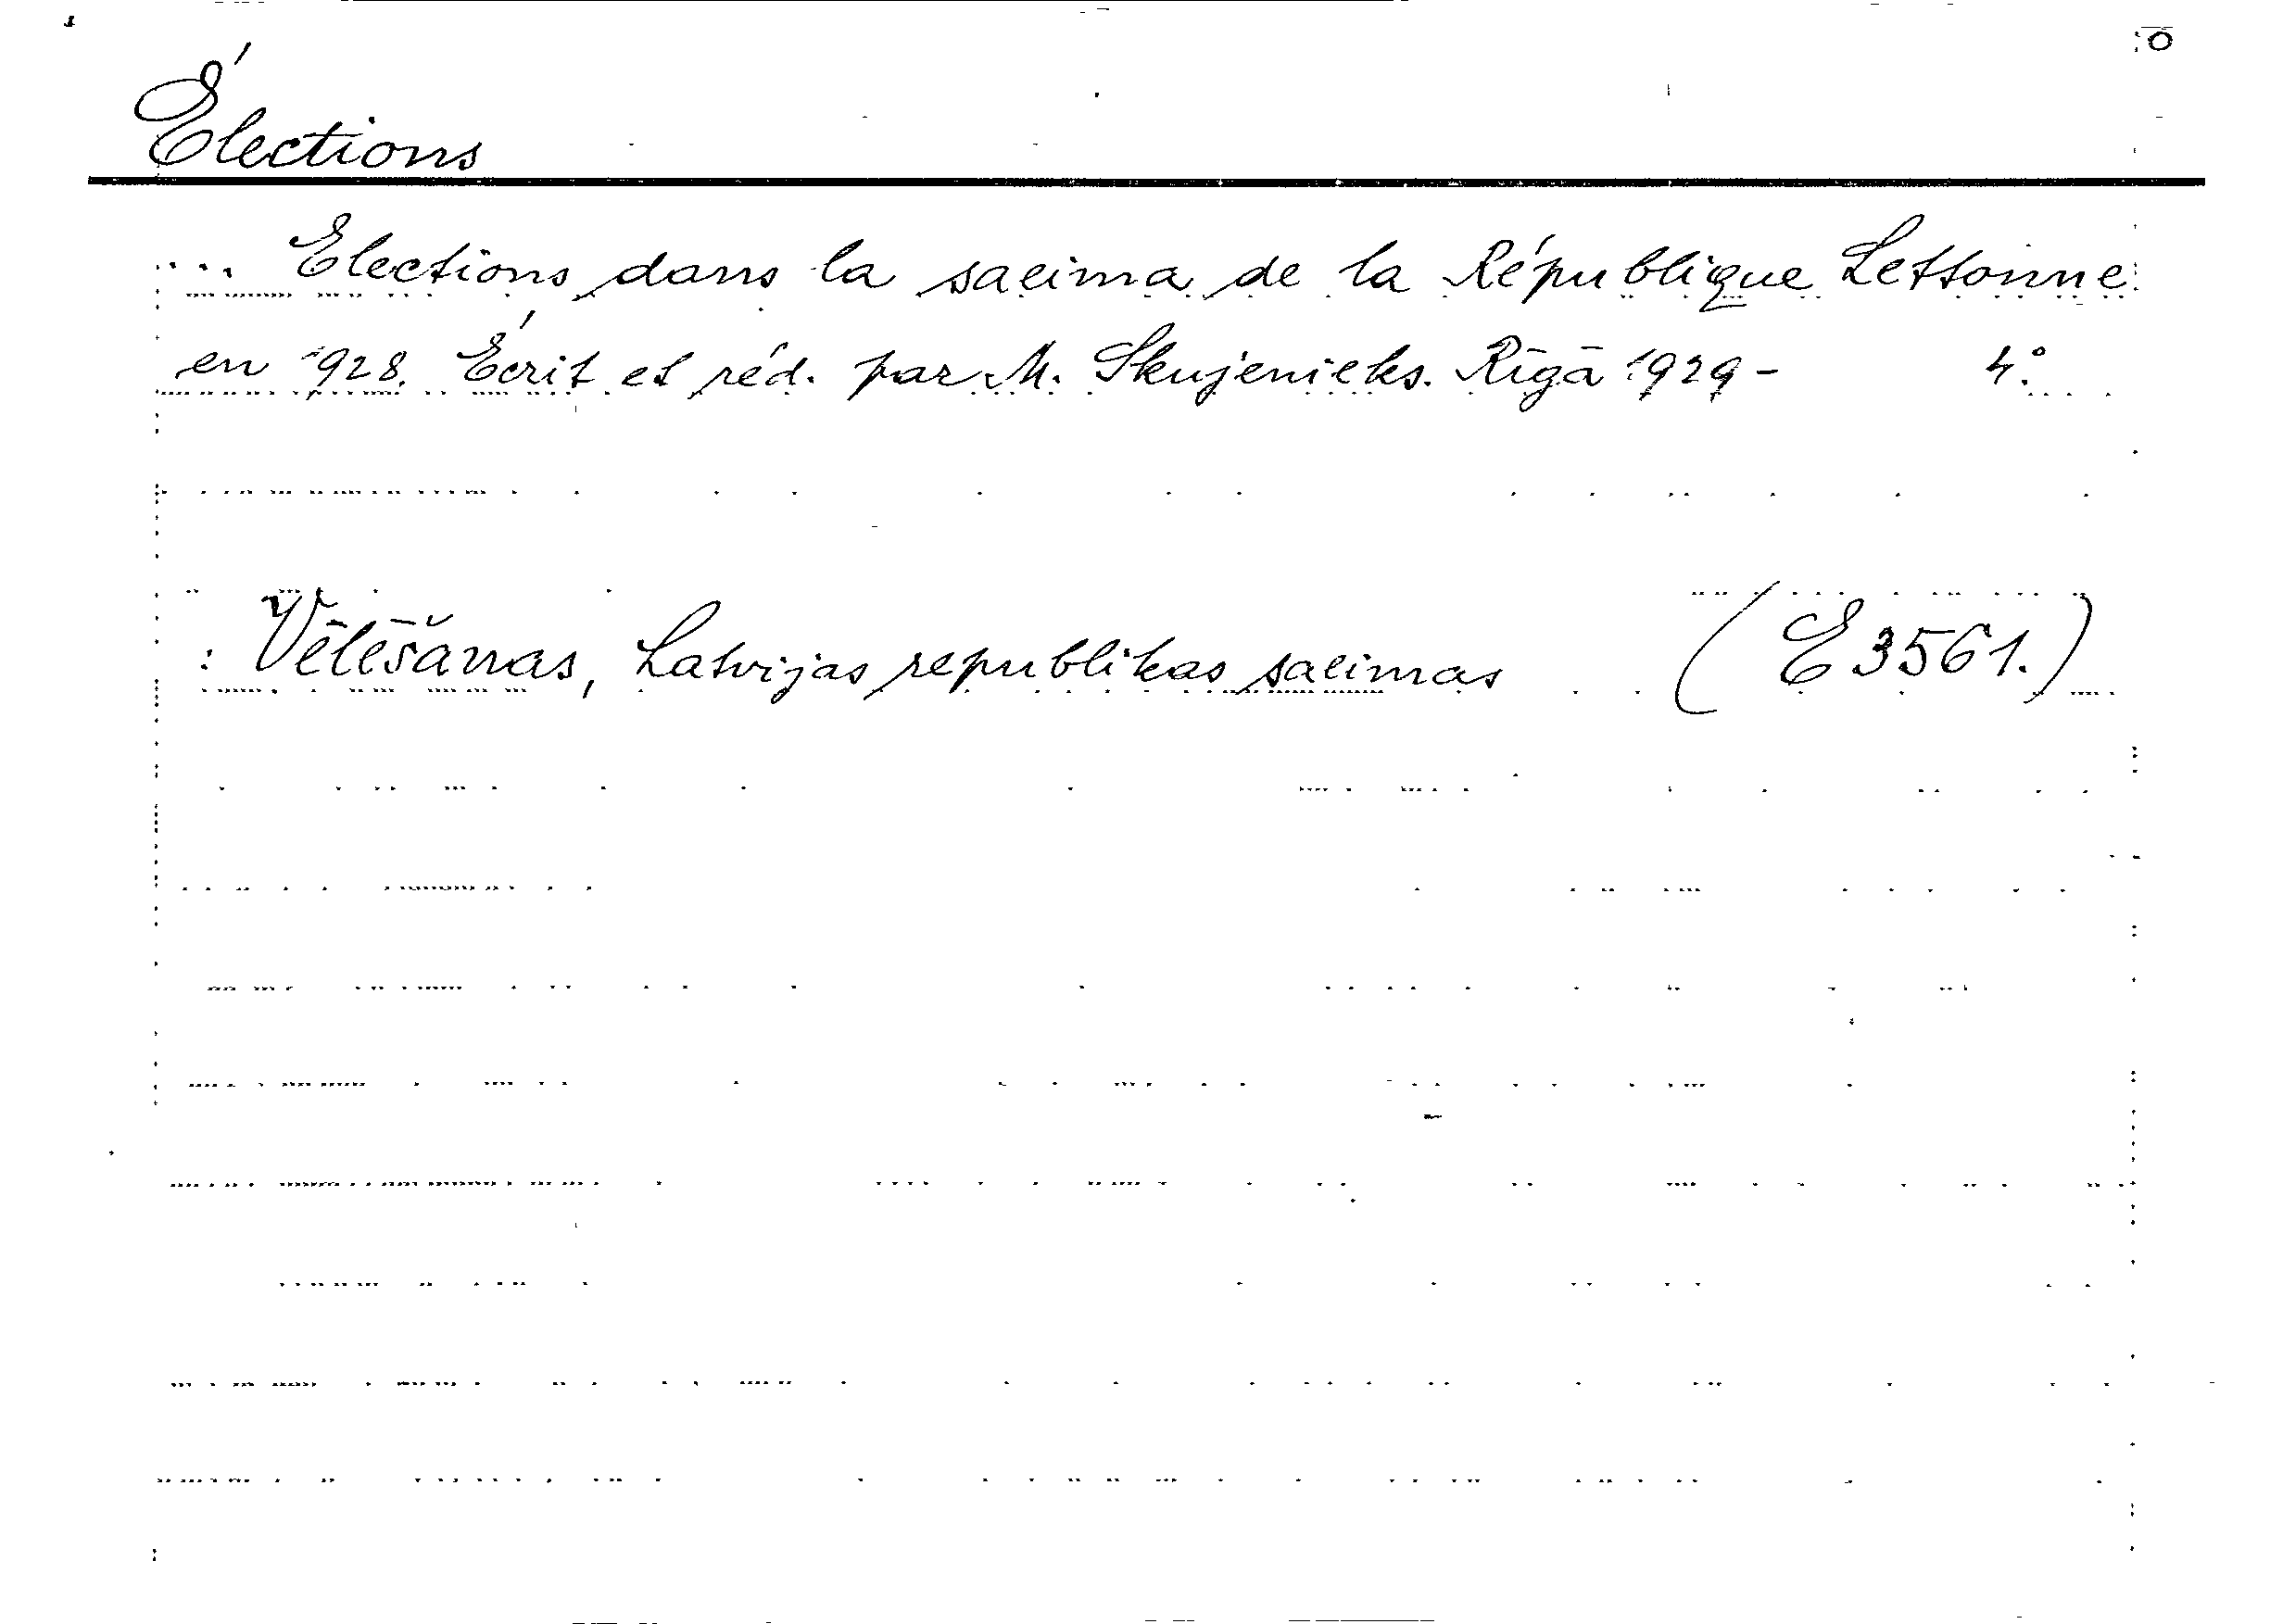 Élections
... Elections dans la saeima de la République Lettonne
en 1928. Écrit et réd. par M. Skujenieks. Rīgā 1929- 4:o
: Vēlēšanas, Latvijas republikas saeimas (E 3561.)